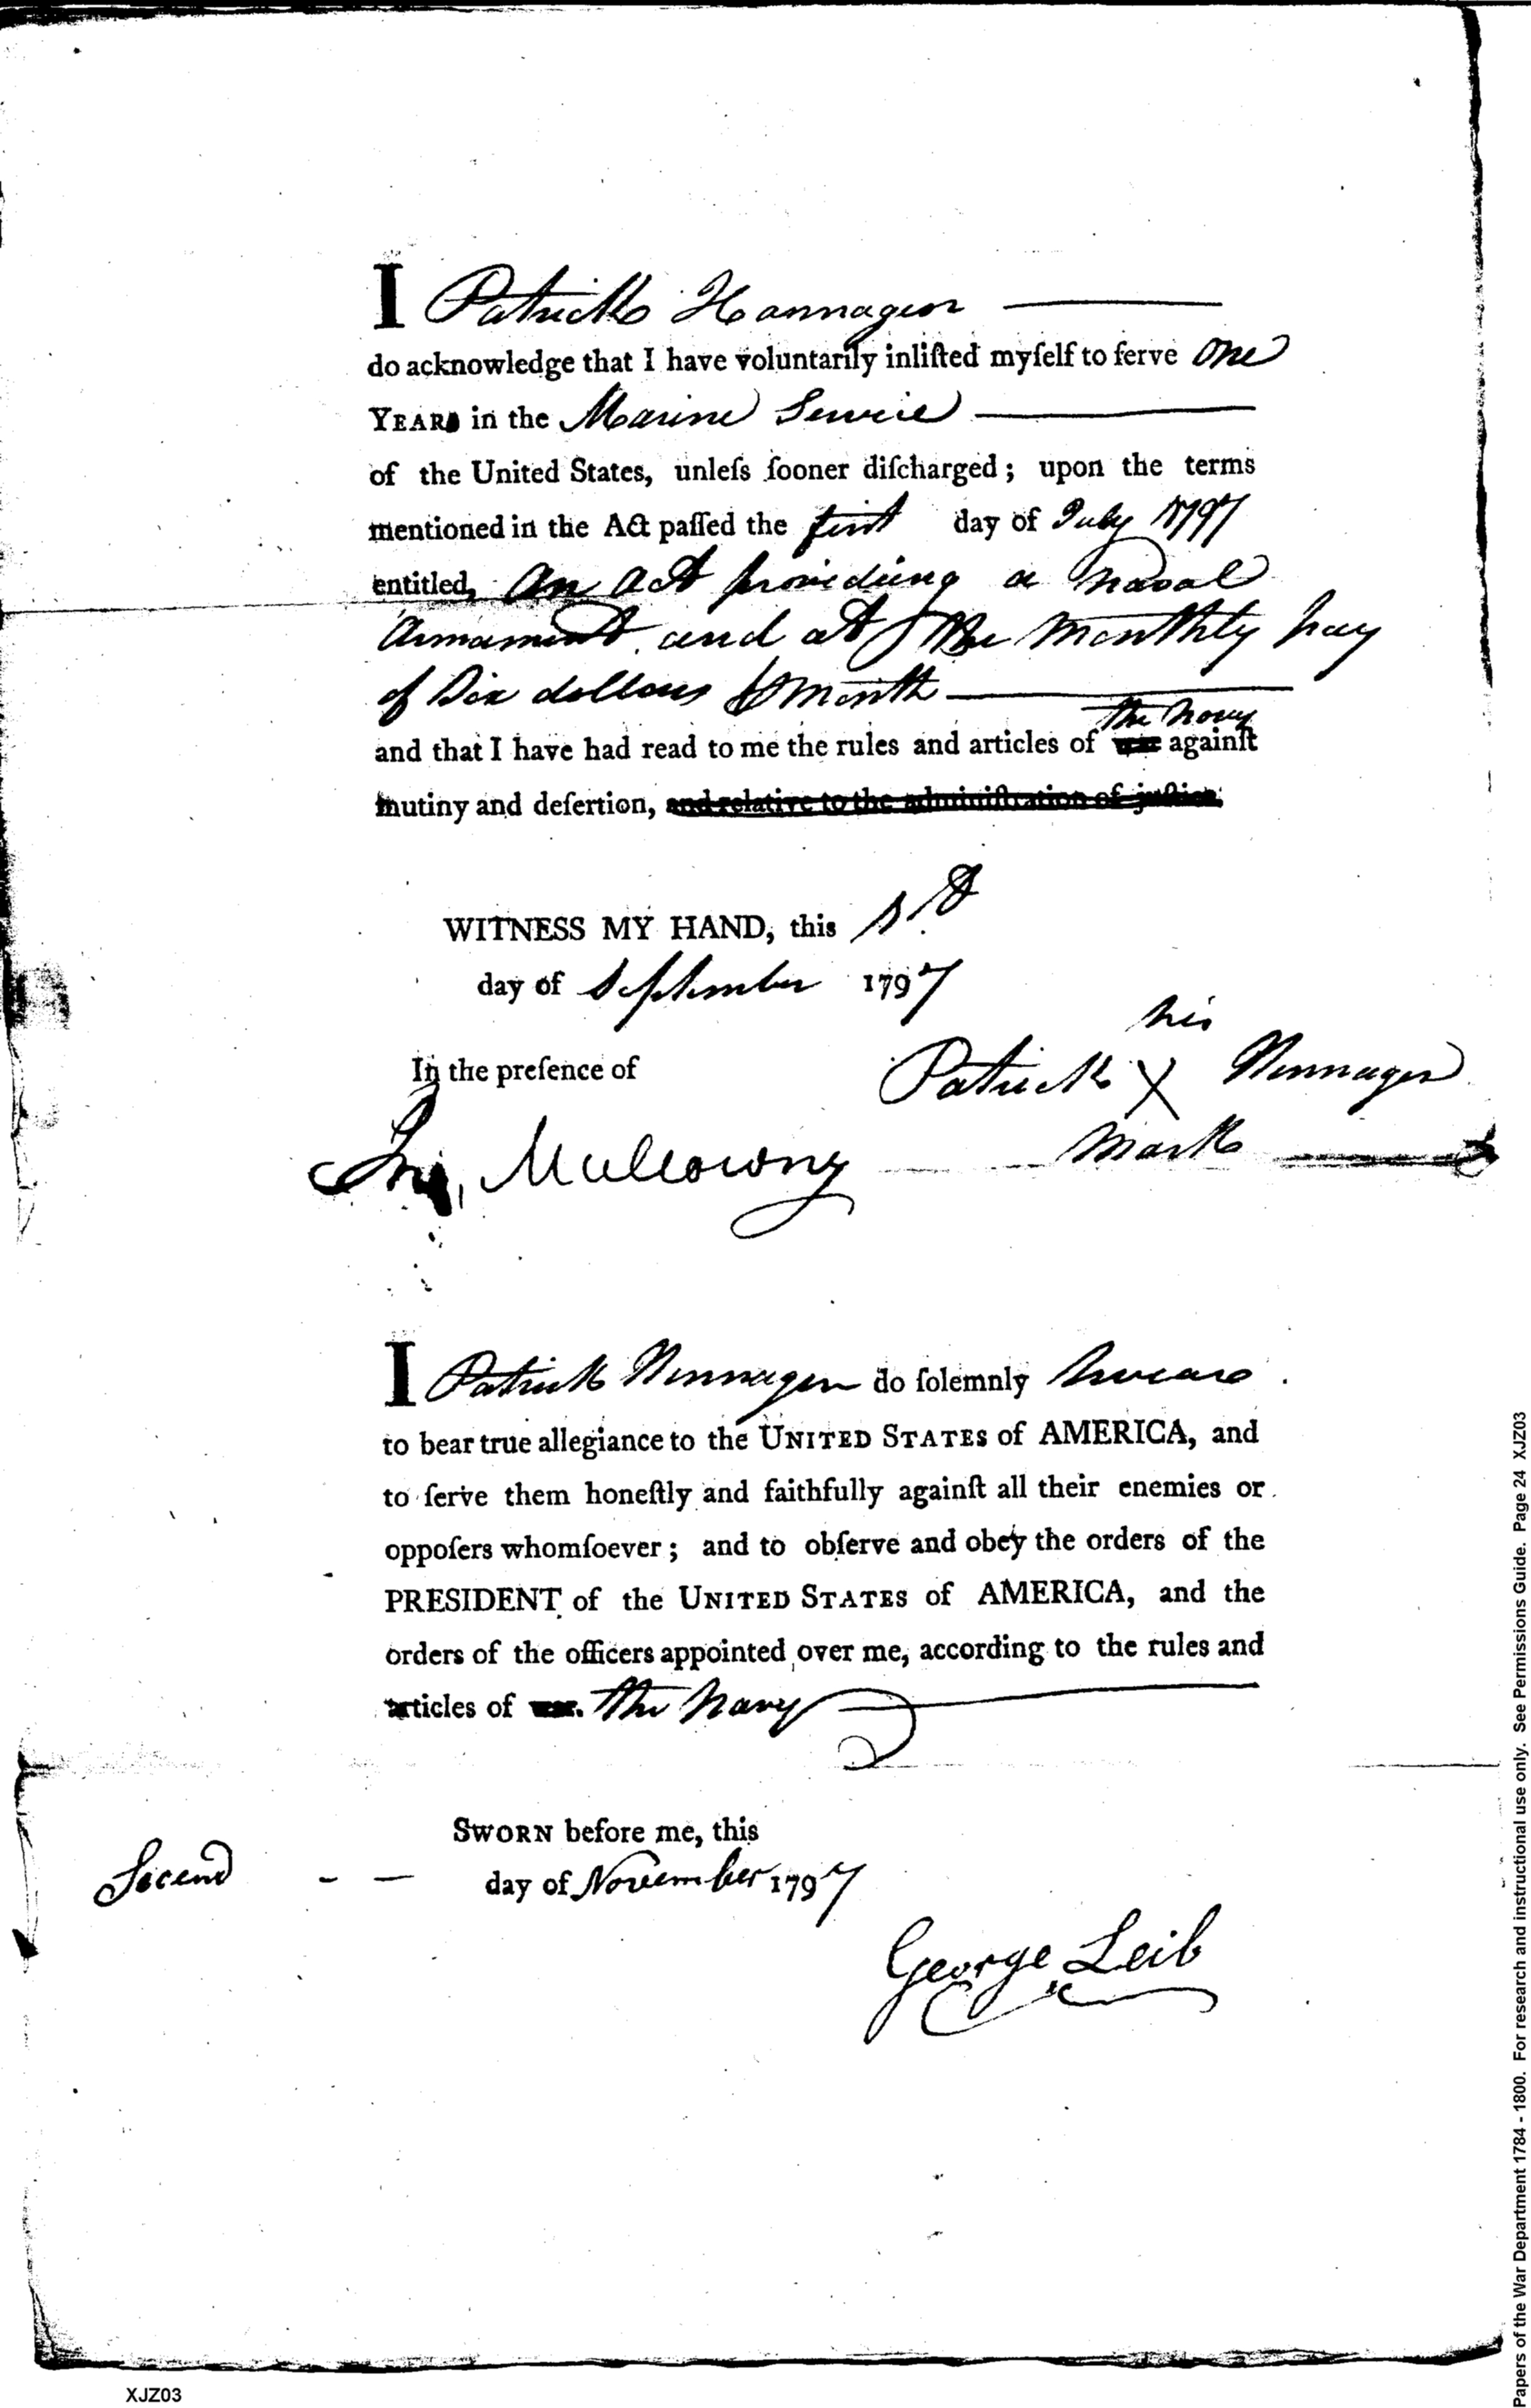 I Patrick Hannagen
do acknowledge that I have voluntarily inliſted myſelf to ſerve One
YEARS in the Marine Service
of the United States, unleſs ſooner diſcharged; upon the terms
mentioned in the Act paſſed the first day of July 1797
entitled, An Act providing a Naval
Armament, and at the monthly pay
of Six dollars ⅌ month
the Navy
and that I have had read to me the rules and articles of war againſt
mutiny and deſertion, and relative to the adminiſtration of juſtice.
WITNESS MY HAND, this 1st
day of September 1797
his
In the preſence of Patrick X
Jno, Mullowny mark
I Patrick do ſolemnly swear
to bear true allegiance to the UNITED STATES of AMERICA, and
to ſerve them honeſtly and faithfully againſt all their enemies or
oppoſers whomſoever; and to obſerve and obey the orders of the
PRESIDENT of the UNITED STATES of AMERICA, and the
orders of the officers appointed over me, according to the rules and
articles of war. the Navy
SWORN before me, this
Second - - day of November 1797
George Leib
XJZ03
Papers of the War Department 1784 - 1800. For research and instructional use only. See Permissions Guide. Page 24 XJZ03